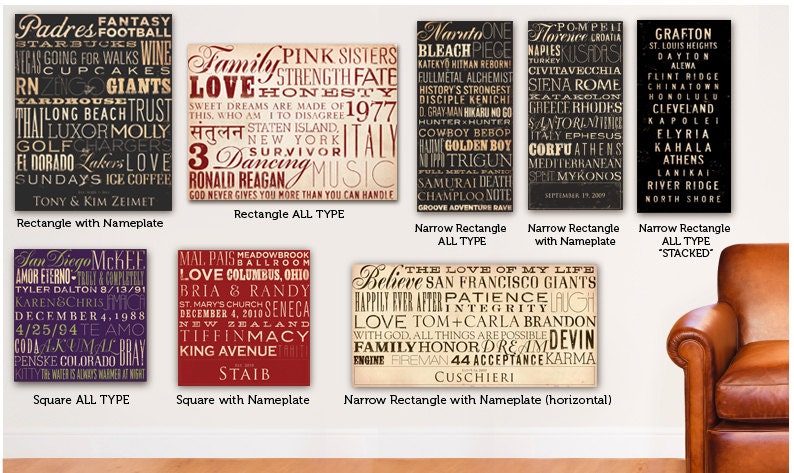 Padres FANTASY FOOTBALL
STARBUCKS WINE
VEGAS GOING FOR WALKS
CUPCAKES
RN ZENO GIANTS
YARDHOUSE TRUST
THAI LONG BEACH
LUXOR MOLLY
GOLF CHARGERS
EL DORADO Lakers LOVE
SUNDAYS ICE COFFEE
TONY & KIM ZEIMET
Rectangle with Nameplate
Family PINK SISTERS
LOVE STRENGTH FATE
HONESTY
SWEET DREAMS ARE MADE OF
THIS, WHO AM I TO DISAGREE 1977
संतुलन STATEN ISLAND,
NEW YORK ITALY
3 SURVIVOR
Dancing MUSIC
RONALD REAGAN,
GOD NEVER GIVES YOU MORE THAN YOU CAN HANDLE
Rectangle ALL TYPE
Naruto ONE
BLEACH PIECE
KATEKYŌ HITMAN REBORN!
FULLMETAL ALCHEMIST
HISTORY'S STRONGEST
DISCIPLE KENICHI
D. GRAY-MAN HIKARU NO GO
HUNTER × HUNTER
COWBOY BEBOP
HAJIME NO IPPO GOLDEN BOY
TRIGUN
FULL METAL PANIC
SAMURAI CHAMPLOO DEATH NOTE
GROOVE ADVENTURE RAVE
Narrow Rectangle
ALL TYPE
POMPEII
Florence CROATIA
NAPLES KUSADASI
TURKEY
CIVITAVECCHIA
SIENA ROME
KATAKOLON
GREECE RHODES
SANTORINI VENICE
ITALY EPHESUS
CORFU ATHENS
MEDITERRANEAN
SPENT MYKONOS
SEPTEMBER 19, 2009
Narrow Rectangle
with Nameplate
GRAFTON
ST. LOUIS HEIGHTS
DAYTON
ALEWA
FLINT RIDGE
CHINATOWN
HONOLULU
CLEVELAND
KAPOLEI
ELYRIA
KAHALA
ATHENS
LANIKAI
RIVER RIDGE
NORTH SHORE
Narrow Rectangle
ALL TYPE
"STACKED"
San Diego MCKEE
AMOR ETERNO TRULY & COMPLETELY
TYLER DALTON 8/13/91
KAREN & CHRIS AMACA
DECEMBER 4, 1988
4/25/94 TE AMO
CODA AKUMAL BBAY
PENSKE COLORADO
KITTY THE WATER IS ALWAYS WARMER AT NIGHT
Square ALL TYPE
MAL PAIS MEADOWBROOK BALLROOM
LOVE COLUMBUS, OHIO
BRIA & RANDY
ST. MARY'S CHURCH SENECA
DECEMBER 4, 2010
NEW ZEALAND
TIFFIN MACY
KING AVENUE TAHITI
STAIB
Square with Nameplate
Believe THE LOVE OF MY LIFE
SAN FRANCISCO GIANTS
HAPPILY EVER AFTER PATIENCE LAUGH
INTEGRITY
LOVE TOM + CARLA BRANDON
WITH GOD, ALL THINGS ARE POSSIBLE DEVIN
FAMILY HONOR DREAM
ENGINE FIREMAN 44 ACCEPTANCE KARMA
CUSCHIERI
Narrow Rectangle with Nameplate (horizontal)